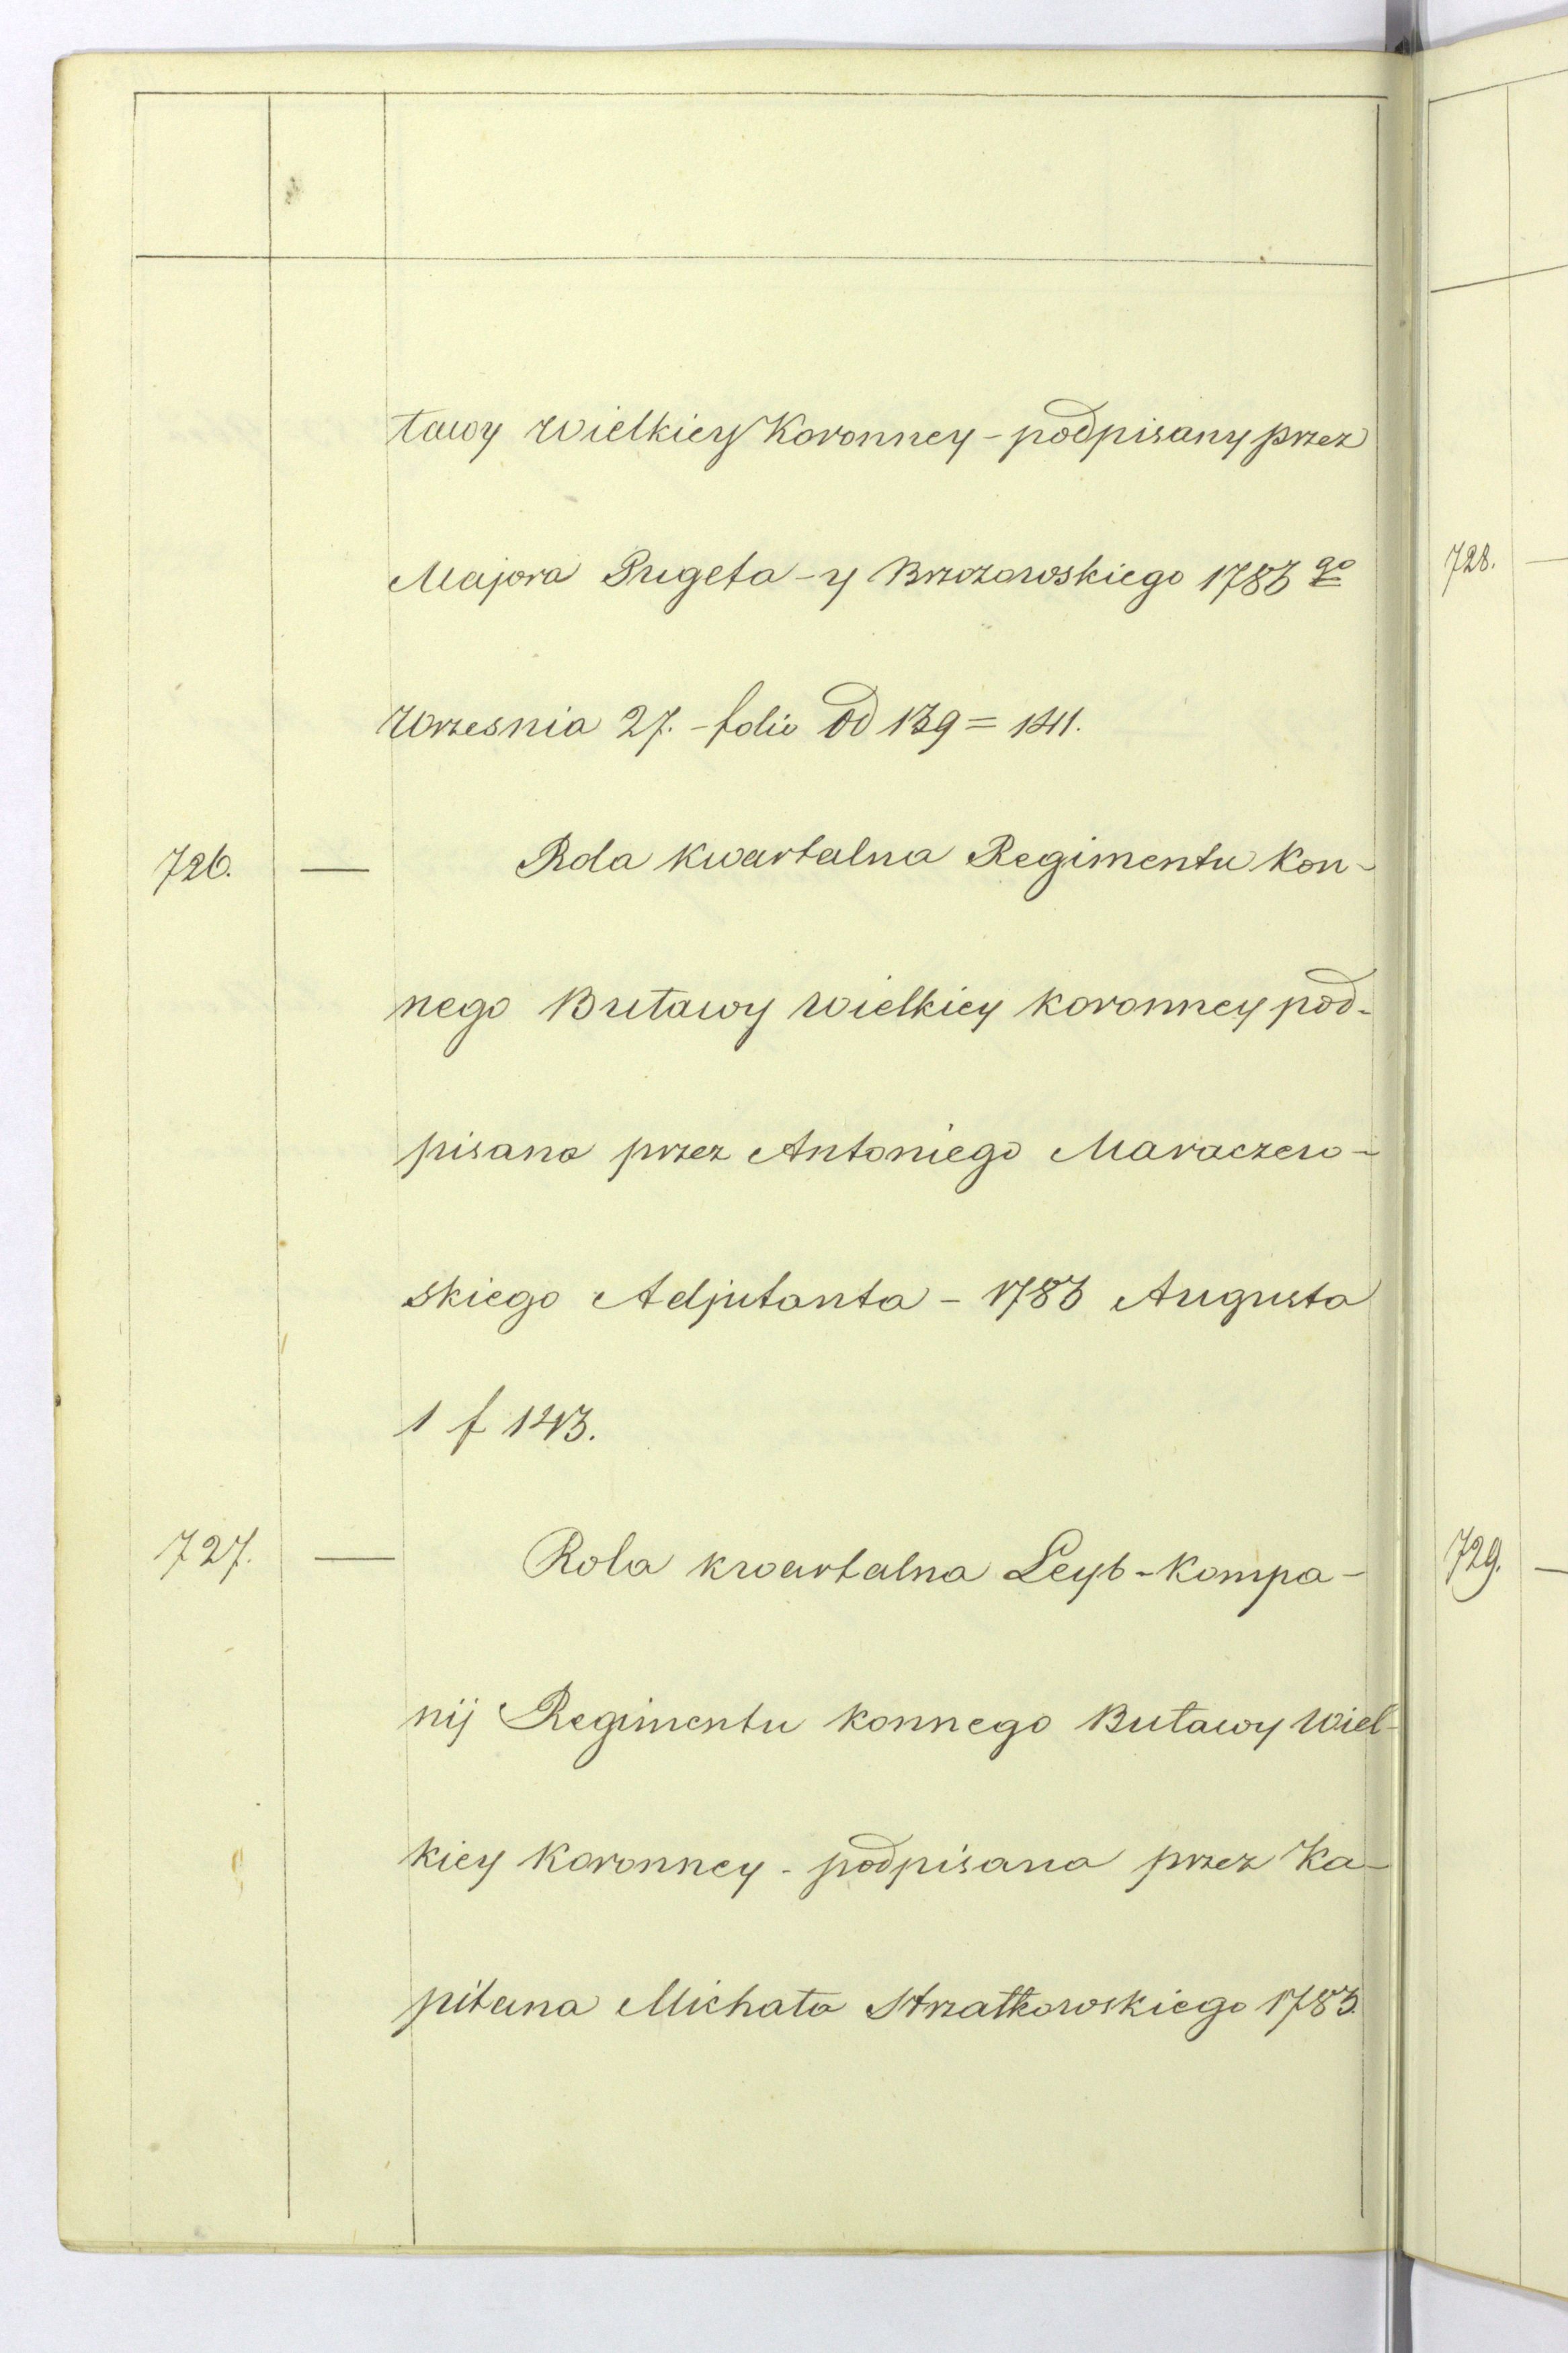 ławy Wielkiey Koronney - podpisany przez
Majora Pugeta - y Brzozowskiego 1783 go
Wrzesnia 27. - folio od 139 = 141.
726. — Rola kwartalna Regimentu kon-
nego Buławy Wielkiey koronney pod-
pisana przez Antoniego Maraczew-
skiego Adjutanta - 1783 Augusta
1 f 143.
727. — Rola kwartalna Leyb-Kompa-
nij Regimentu konnego Buławy Wiel-
kiey Koronney - podpisana przez Ka-
pitana Michała Strzałkowskiego 1783.
728. —
729. —